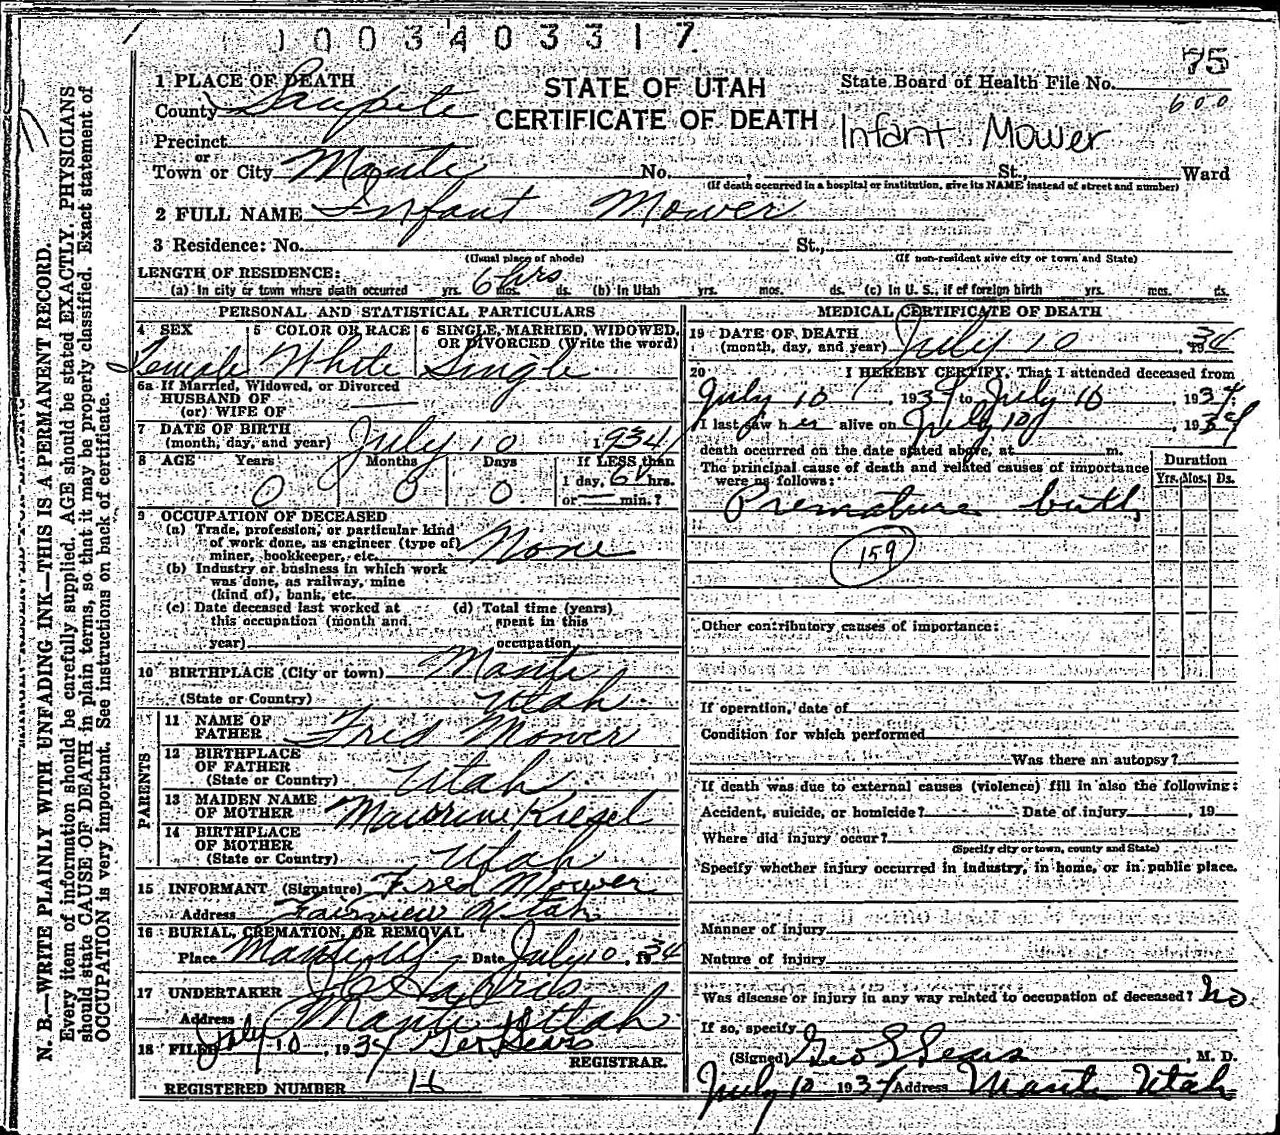 1003403317
75
1 PLACE OF DEATH
STATE OF UTAH
State Board of Health File No.
600
County Sanpete
CERTIFICATE OF DEATH
Infant Mower
Precinct
or
Town or City Manti No. , St., Ward
(If death occurred in a hospital or institution, give its NAME instead of street and number)
2 FULL NAME Infant Mower
3 Residence: No. St.,
(Usual place of abode) (If non-resident give city or town and State)
LENGTH OF RESIDENCE:
(a) In city or town where death occurred yrs. 6 hrs mos. ds. (b) In Utah yrs. mos. ds. (c) In U. S., if of foreign birth yrs. mos. ds.
PERSONAL AND STATISTICAL PARTICULARS
4 SEX 5 COLOR OR RACE 6 SINGLE, MARRIED, WIDOWED, OR DIVORCED (Write the word)
Female White Single
6a If Married, Widowed, or Divorced
HUSBAND OF
(or) WIFE OF
7 DATE OF BIRTH
(month, day, and year) July 10 1934
8 AGE Years Months Days If LESS than
0 0 0 1 day, 6 hrs.
or min.?
9 OCCUPATION OF DECEASED
(a) Trade, profession, or particular kind
of work done, as engineer (type of)
miner, bookkeeper, etc. None
(b) Industry or business in which work
was done, as railway, mine
(kind of), bank, etc.
(c) Date deceased last worked at (d) Total time (years)
this occupation (month and spent in this
year) occupation
10 BIRTHPLACE (City or town) Manti
(State or Country) Utah
PARENTS
11 NAME OF
FATHER Fred Mower
12 BIRTHPLACE
OF FATHER
(State or Country) Utah
13 MAIDEN NAME
OF MOTHER Maurine Kiesel
14 BIRTHPLACE
OF MOTHER
(State or Country) Utah
15 INFORMANT (Signature) Fred Mower
Address Fairview Utah
16 BURIAL, CREMATION, OR REMOVAL
Place Manti Ut Date July 10, 1934
17 UNDERTAKER
Address Manti Utah
18 FILED July 10, 1934 Geo Sears
REGISTRAR.
REGISTERED NUMBER 16
MEDICAL CERTIFICATE OF DEATH
19 DATE OF DEATH
(month, day, and year) July 10, 1934
20 I HEREBY CERTIFY, That I attended deceased from
July 10, 1934 to July 10, 1934
I last saw her alive on July 10, 1934
death occurred on the date stated above, at m.
Duration
The principal cause of death and related causes of importance
were as follows: Yrs. Mos. Ds.
Premature birth
159
Other contributory causes of importance:
If operation, date of
Condition for which performed
Was there an autopsy?
If death was due to external causes (violence) fill in also the following:
Accident, suicide, or homicide? Date of injury , 19
Where did injury occur?
(Specify city or town, county and State)
Specify whether injury occurred in industry, in home, or in public place.
Manner of injury
Nature of injury
Was disease or injury in any way related to occupation of deceased? No
If so, specify
(Signed) Geo L Sears, M. D.
July 10 1934 Address Manti Utah
N. B.—WRITE PLAINLY WITH UNFADING INK—THIS IS A PERMANENT RECORD.
Every item of information should be carefully supplied. AGE should be stated EXACTLY. PHYSICIANS
should state CAUSE OF DEATH in plain terms, so that it may be properly classified. Exact statement of
OCCUPATION is very important. See instructions on back of certificate.